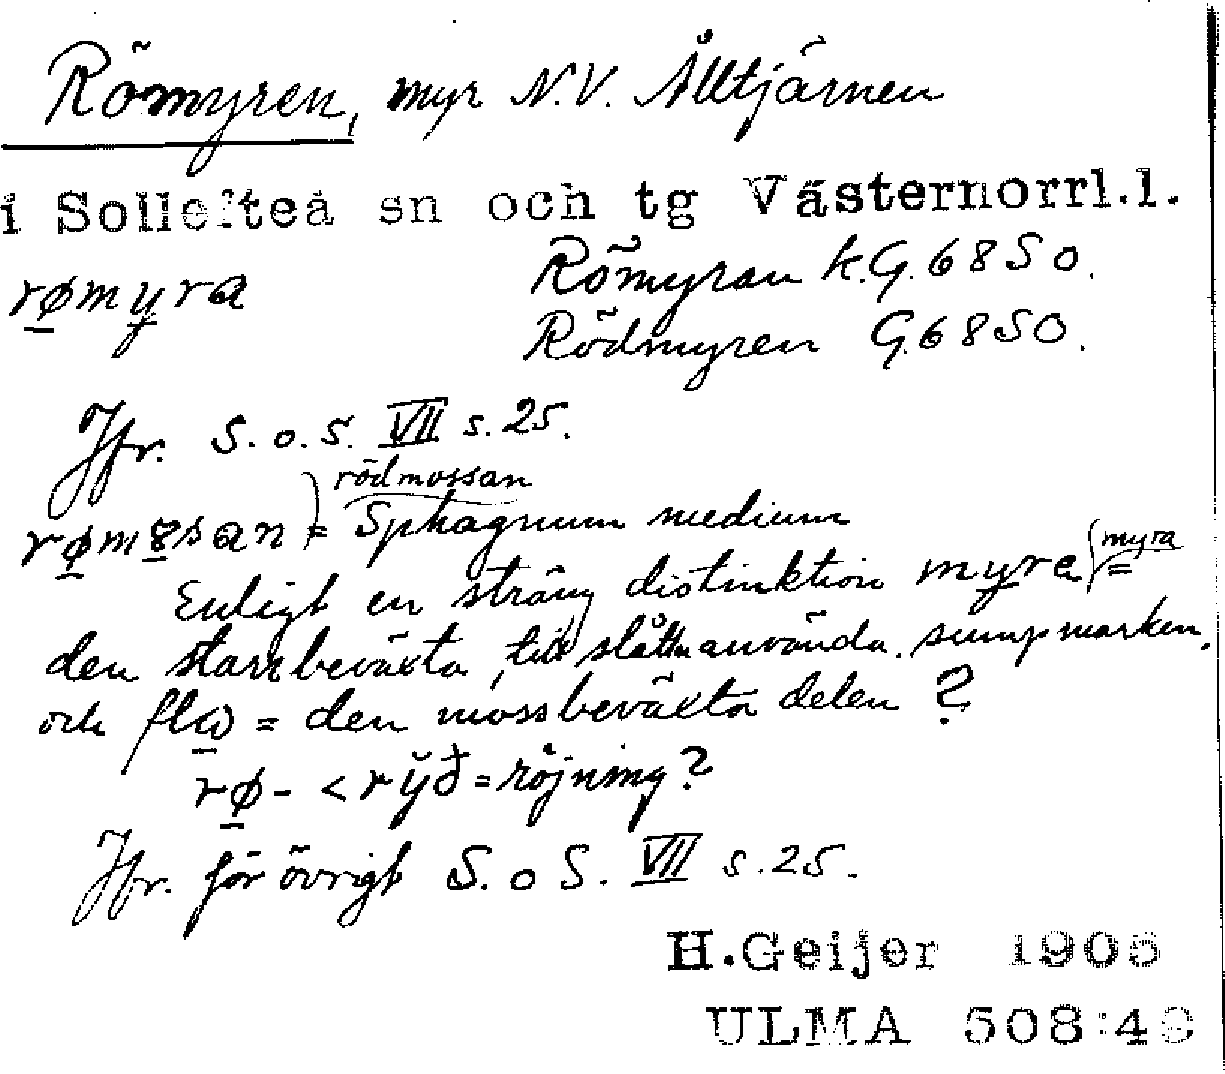 Römyren, myr N.V. Ålltjärnen
i Sollefteå sn och tg Västernorrl.l.
rømyra
Römyran k.G. 68 SO.
Rödmyren G. 68 SO.
Jfr. S.o.S. VII s. 25.
rødmossan
rømosan = Sphagnum medium
Enligt en sträng distinktion myra (myra) =
den starrbeväxta, till slåtter använda sumpmarken,
och flω = den mossbeväxta delen?
rø- < rȳð = röjning?
Jfr. för övrigt S.o S. VII s. 25.
H.Geijer 1905
ULMA 508:4